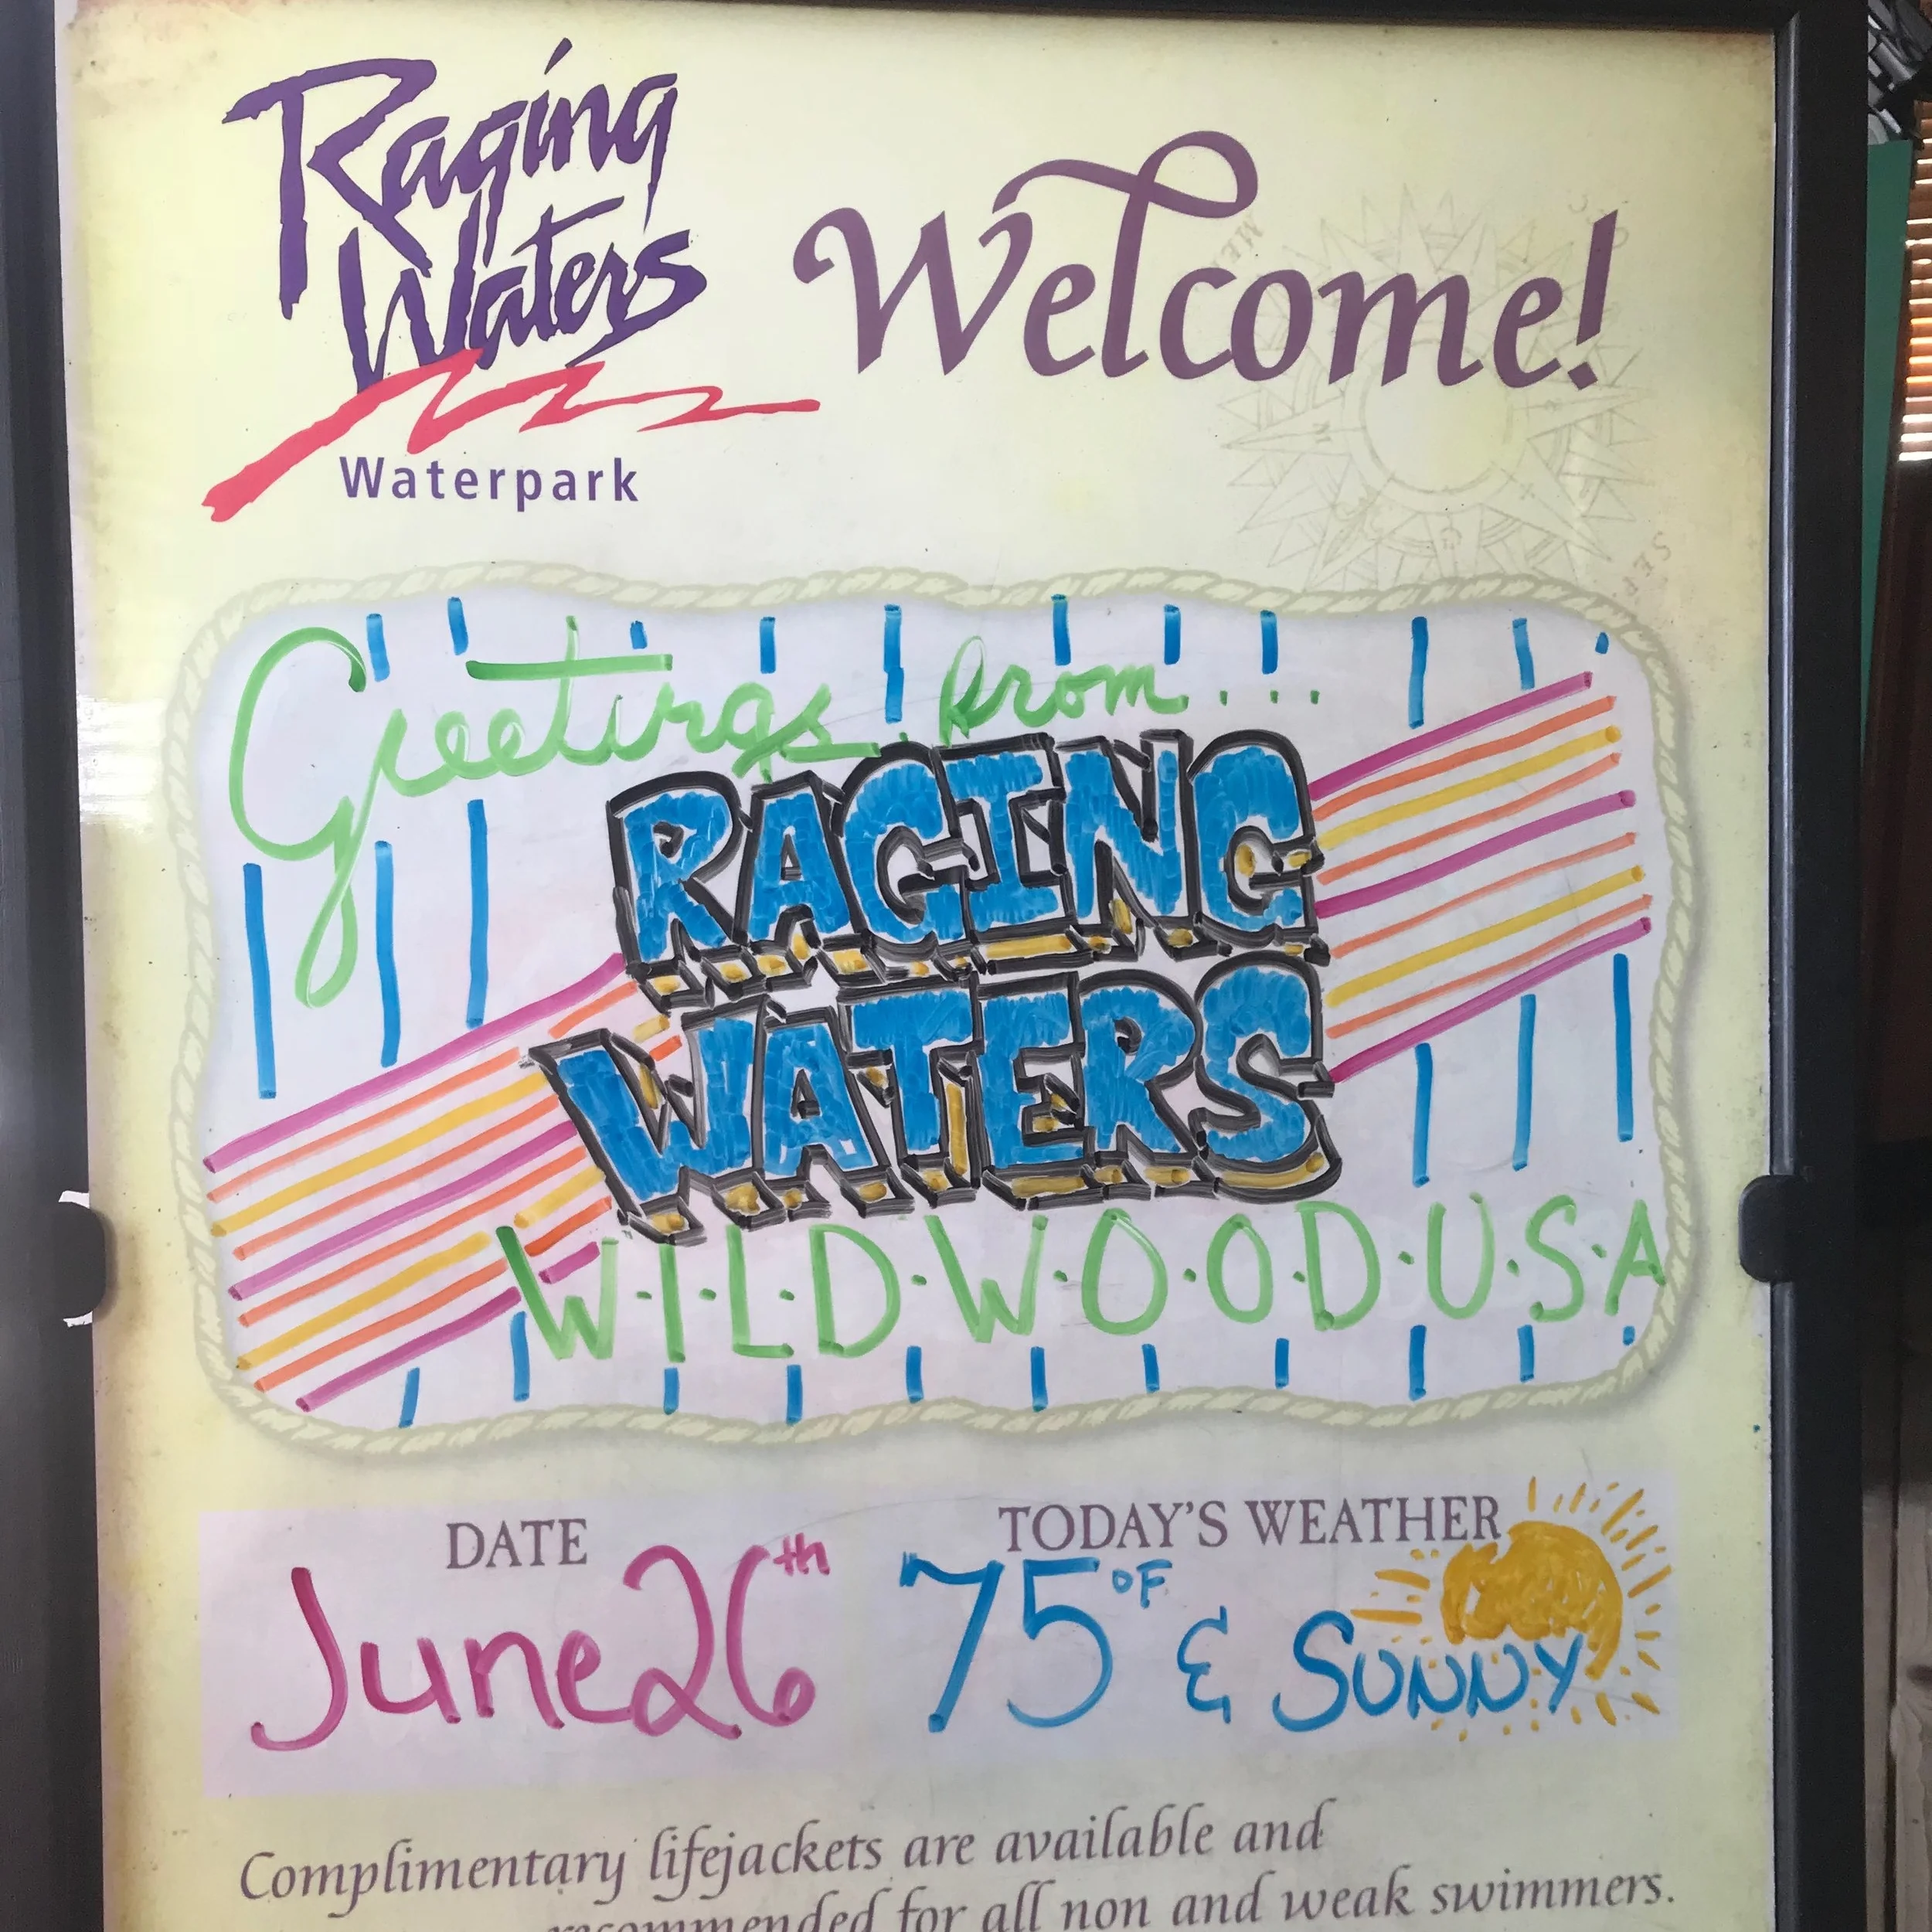 Raging
Waters
Waterpark
Welcome!
Greetings from...
RAGING
WATERS
W·I·L·D·W·O·O·D·U·S·A
DATE
June 26th
TODAY'S WEATHER
75°F & SUNNY
Complimentary lifejackets are available and
recommended for all non and weak swimmers.